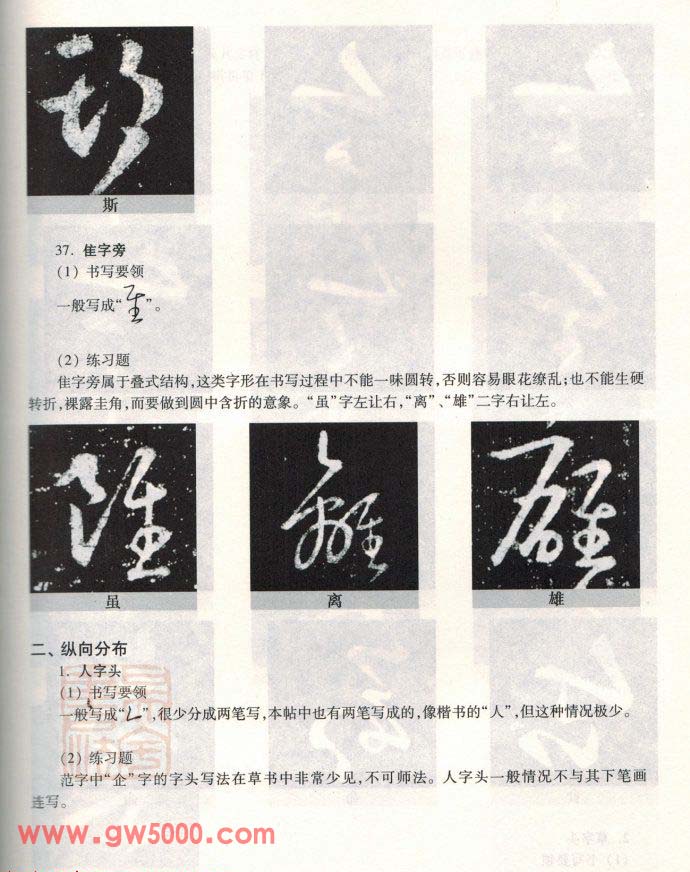 斯
37. 隹字旁
(1) 书写要领
一般写成“”。
(2) 练习题
隹字旁属于叠式结构,这类字形在书写过程中不能一味圆转,否则容易眼花缭乱;也不能生硬
转折,裸露圭角,而要做到圆中含折的意象。“虽”字左让右,“离”、“雄”二字右让左。
虽 离 雄
二、纵向分布
1. 人字头
(1) 书写要领
一般写成“”,很少分成两笔写,本帖中也有两笔写成的,像楷书的“人”,但这种情况极少。
(2) 练习题
范字中“企”字的字头写法在草书中非常少见,不可师法。人字头一般情况不与其下笔画
连写。
www.gw5000.com